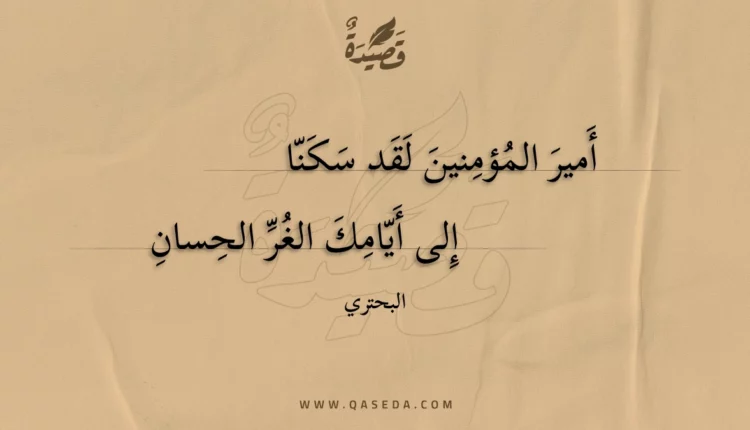 قَصِيْدَةٌ
أَميرَ المُؤمِنينَ لَقَد سَكَنّا
إِلى أَيّامِكَ الغُرِّ الحِسانِ
البحتري
WWW.QASEDA.COM